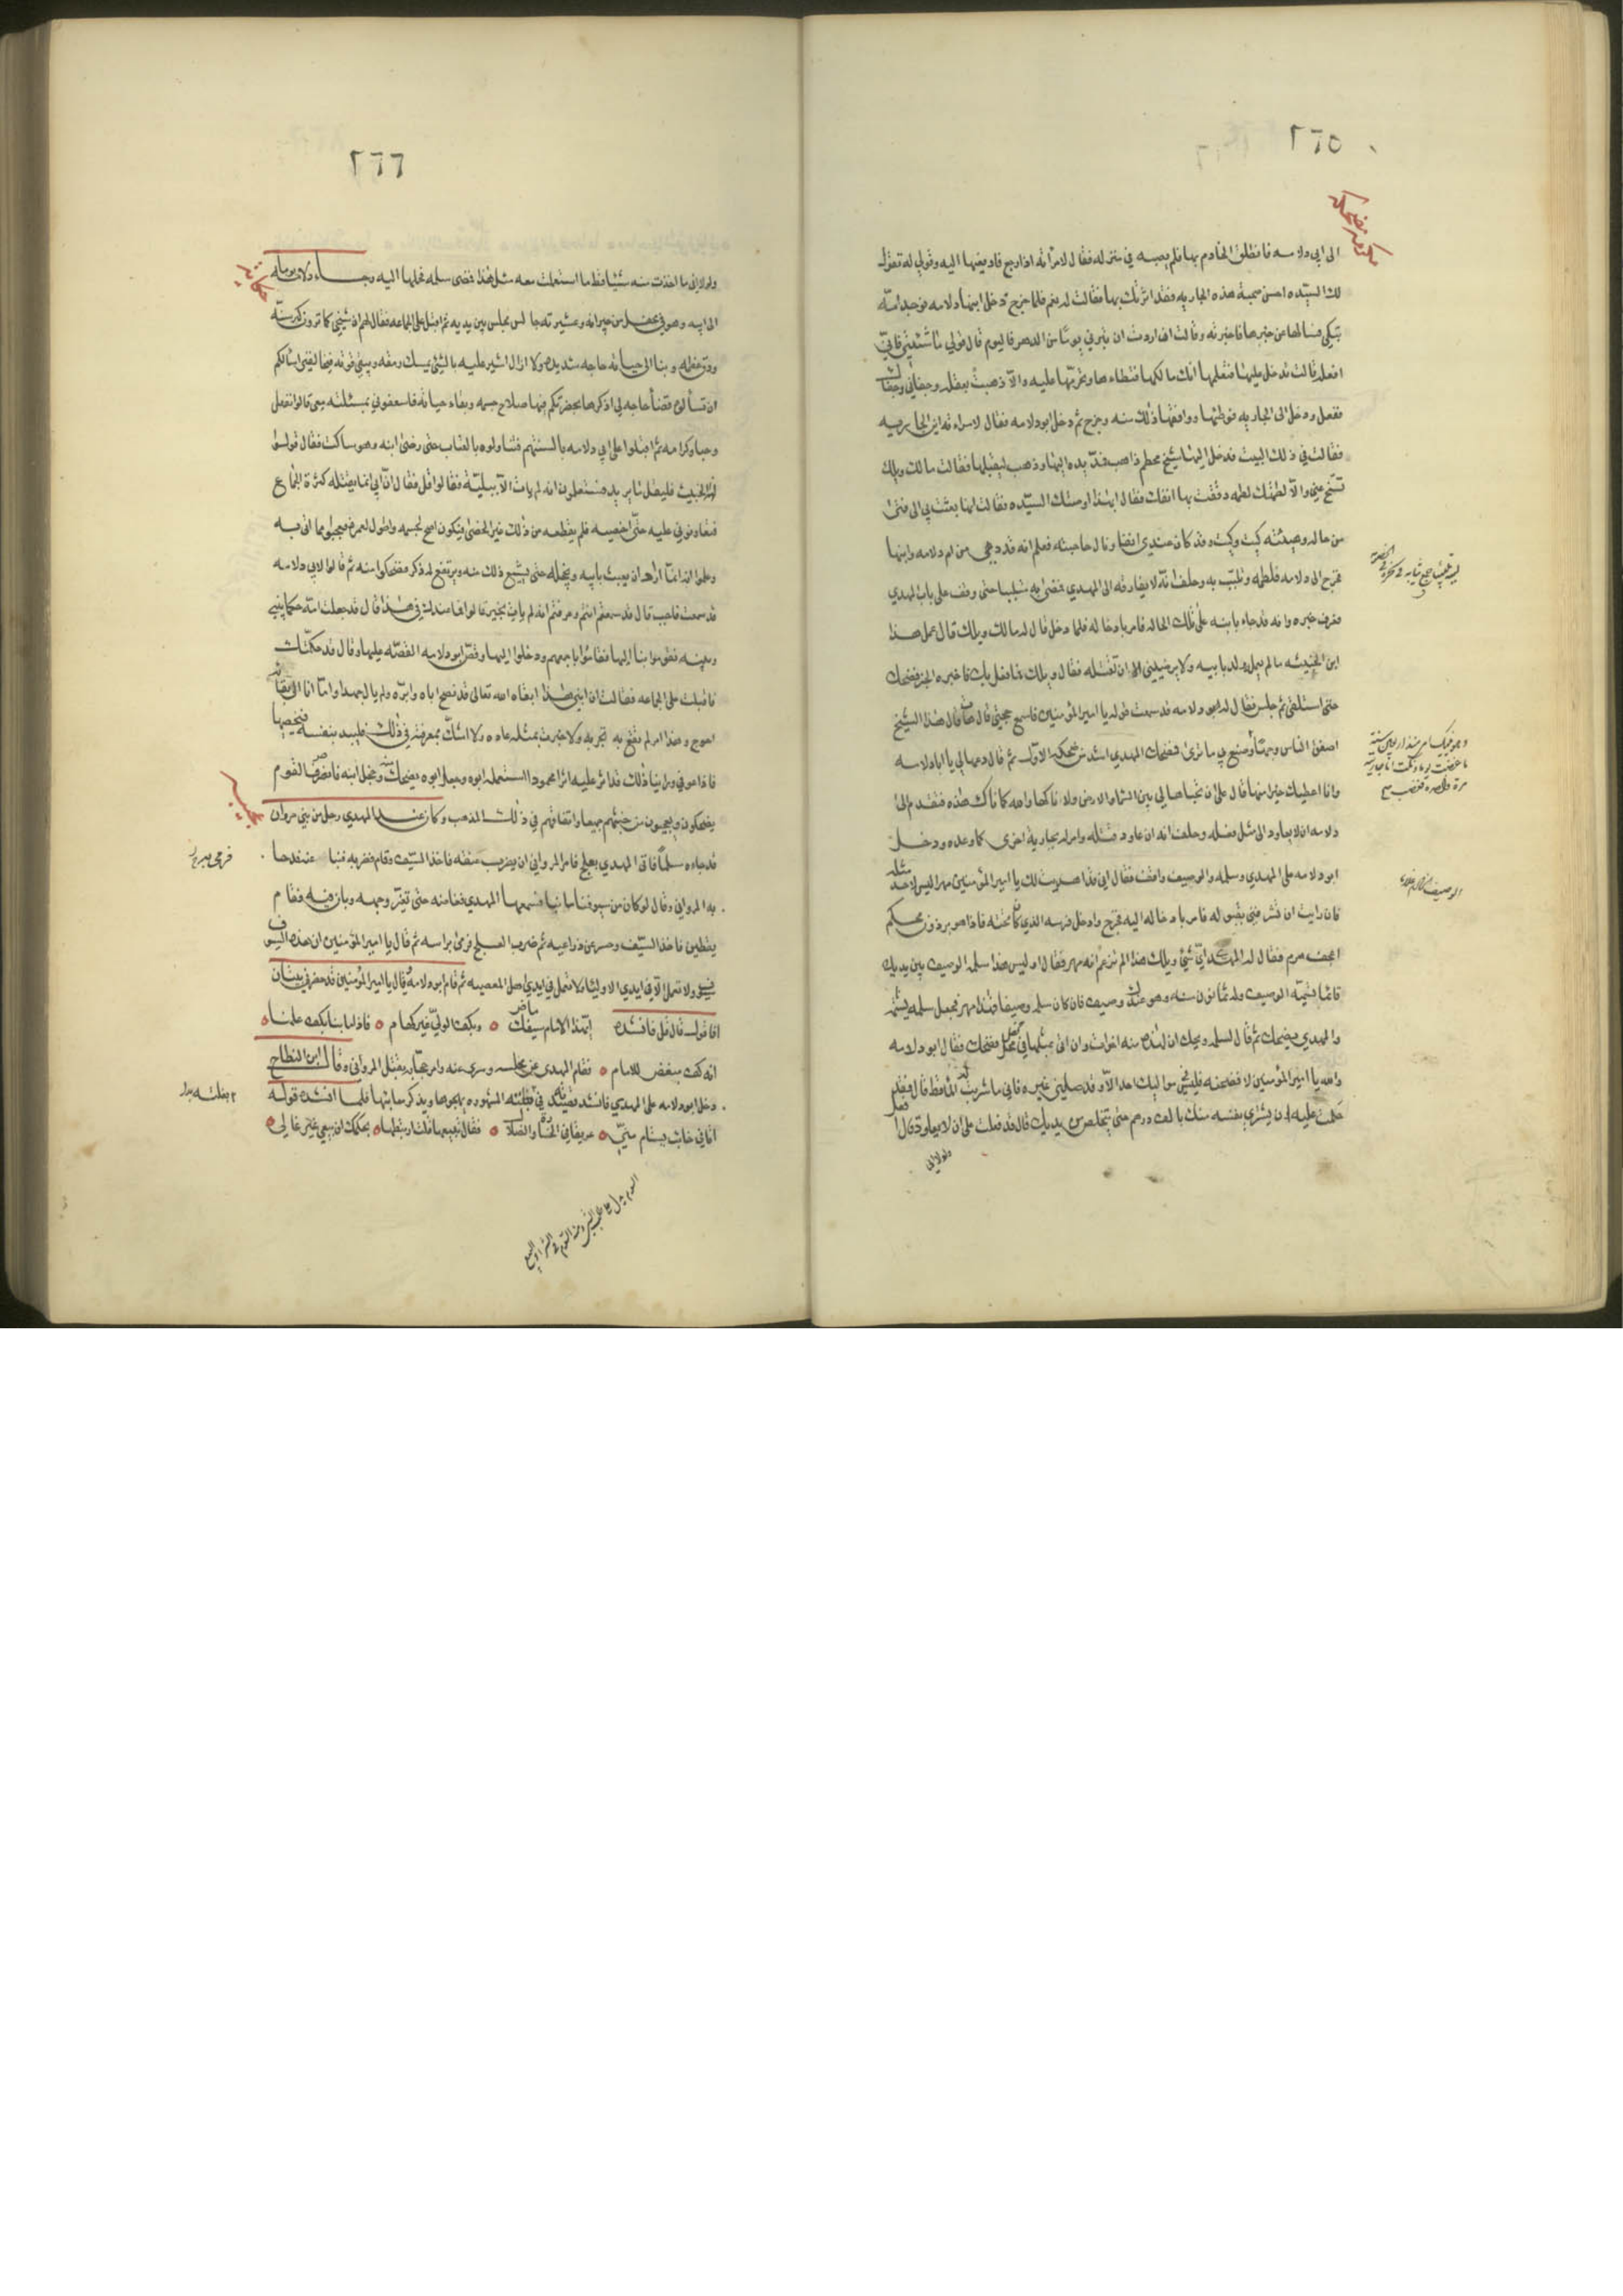 ٢٦٥
الى ابي دلامه فانطلق الخادم بها فلم يصبه في منزله فقال لامرأته اذا رجع فادفعيها اليه وقولي له تقول
لك السيده احسن صحبة هذه الجاريه فقد اثرتك بها فقالت له نعم فلما خرج دخل ابنها دلامه فوجد امه
تبكي فسالها عن خبرها فاخبرته وقالت ان اردت ان تبرني يوما من الدهر فاليوم قال قولي ما شئتي فاني
افعله قالت تدخل عليها فتعلمها انك مالكها فتطاءها وتحرمها عليه والا ذهبت بعقله وجفاني وجفاك
ففعل ودخل الى الجاريه فوطئها ووافقها ذلك منه وخرج ثم دخل ابو دلامه فقال لامراته اين الجاريه
فقالت في ذلك البيت فدخل اليها شيخ محطم ذاهب فمد يده اليها وذهب ليقبلها فقالت مالك ويلك
تنح عني والا لطمتك لطمه دققت بها انفك فقال ابهذا اوصتك السيده فقالت انها بعثت بي الى فتى
من حاله وهيئته كيت وكيت وقد كان عندي انفا ونال حاجته فعلم انه قد دهي من ام دلامه وابنها
فخرج الى دلامه فلطمه وتلبب به وحلف انه لا يفارقه الى المهدي فمضى به متلببا حتى وقف على باب المهدي
فعرف خبره وانه قد جاء بابنه على تلك الحاله فامر بادخاله فلما دخل قال له مالك ويلك قال عمل هذا
ابن الخبيثه ما لم يعمله ولد بابيه ولا يرضيني الا ان تقتله فقال ويلك فما فعل بك فاخبره الخبر فضحك
حتى استلقى ثم جلس فقال له ابو دلامه قد سمعت قوله يا امير المؤمنين فاسمع حجتي قال هات قال هذا الشيخ
اصفق الناس وجها وصنع بي ما ترى فضحك المهدي اشد من ضحكه الاول ثم قال دعها لي يا ابا دلامه
وانا اعطيك خيرا منها قال على ان تخباها لي بين السماء والارض والا ناكها والله كما ناك هذه فتقدم الى
دلامه ان لا يعاود الى مثل فعله وحلف انه ان عاود قتله وامر له بجارية اخرى كما وعده ودخل
ابو دلامه على المهدي وسلمه والوصيف واقف فقال اني قد اهديت لك يا امير المؤمنين مهرا ليس لاحد مثله
فان رايت ان تشرفني بقبوله فامر بادخاله اليه فخرج وادخل فرسه الذي كان تحته فاذا هو برذون محطم
اعجف هرم فقال له المهدي اي شيء ويلك هذا الم تزعم انه مهر فقال اوليس هذا سلمه الوصيف بين يديك
قائما تسميه الوصيف وله ثمانون سنه وهو عندك وصيف فان كان سلمه وصيفا فهذا مهر فجعل سلمه يشتمه
والمهدي يضحك ثم قال لسلمه ويحك ان لهذه منه اخوات وان اتى بمثلها في محفل فضحك فقال ابو دلامه
والله يا امير المؤمنين لافضحنه فليس في مواليك احد الا وقد وصلني غيره فاني ما شربت له الماء قط قال فقد
حكمت عليه ان يشتري نفسه منك بالف درهم حتى يتخلص من يدك قال قد فعلت على ان لا يعاود قال افعل
ولولا اني
الوصيف
٢٦٦
ولولا اني ما اخذت منه شيئا قط ما استعملت معه مثل هذا فمضى سلمه فحملها اليه وجاء دلامه يوما
الى ابيه وهو في محفل من جيرانه وعشيرته جالس فجلس بين يديه ثم اقبل على الجماعه فقال لهم ان شيخي كما ترون كبر سنه
ودق عظمه وبنا الى حياته حاجه شديده ولا ازال اشير عليه بالشيء يمسك رمقه ويبقي قوته فيخالفني اسالكم
ان تسالوه قضاء حاجه لي اذكرها بحضرتكم فيها صلاح جسمه وبقاء حياته فاسعفوني بمسئلته معي قالوا نفعل
وحبا وكرامه ثم اقبلوا على ابي دلامه بالسنتهم فتناولوه بالعتاب حتى رضى ابنه وهو ساكت فقال قولوا
للخبيث فليقل ما يريد فستعلمون انه لم يات الا ببليه فقالوا قل فقال ان ابي انما يقتله كثرة الجماع
فتعاونوني عليه حتى اخصيه فلم يقطعه من ذلك غير الخصى فيكون اصح لجسمه واطول لعمره فعجبوا مما اتى به
وعلموا انه انما اراد ان يعبث بابيه ويخجله حتى يشيع ذلك منه ويرتفع له ذكر فضحكوا منه ثم قالوا لابي دلامه
قد سمعت فاجب قال قد سمعتم انتم وعرفتم انه لم يات بخير قالوا فما عندك في هذا قال قد جعلت امه حكما بيني
وبينه فقوموا بنا اليها فقاموا باجمعهم ودخلوا اليها وقص ابو دلامه القصه عليها وقال قد حكمتك
فاقبلت على الجماعه فقالت ان ابني هذا ابقاه الله تعالى قد نصح اباه وابره ولم يال جهدا وما انا الى بقائه
احوج وهذا امر لم تقع به تجربه ولا جرت بمثله عاده ولا اشك بمعرفته في ذلك فليبد بنفسه فليخصها
فاذا عوفي وراينا ذلك قد اثر عليه اثرا محمودا استعمله ابوه وجعل ابوه يضحك منه وخجل ابنه فانصرف القوم
يضحكون ويعجبون من خبثهم جميعا واتفاقهم في ذلك المذهب وكان عند المهدي رجل من بني مروان
قد جاءه سلما فاتى المهدي بعلج فامر المرواني ان يضرب عنقه فاخذ السيف وقام فضربه فنبا عنه فدحا
به المرواني وقال لو كان من سيوفنا ما نبا فسمعها المهدي فغاظته حتى تغير وجهه وبان فيه فقام
يقطين فاخذ السيف وحسر عن ذراعيه ثم ضرب العلج فرمى براسه ثم قال يا امير المؤمنين ان هذه السيوف
سيوف ولا تعمل الا في ايدي الاولياء ولا تعمل في ايدي اهل المعصيه ثم قام ابو دلامه وقال يا امير المؤمنين قد حضرني بيتان
افاقول قال قل فانشده ايهذا الامام سيفك ماض • وبكف الولي غير كهام • فاذا ما نبا بكف علمنا •
انه كف مبغض للامام • فقام المهدي من مجلسه وسري عنه وامر حجابه بقتل المرواني وقال ابن النطاح
دخل ابو دلامه على المهدي فانشده قصيدته في بغلته المشهوره يهجوها ويذكر معايبها فلما انشده قوله
اتاني خائب يستام مني • عريقا في الخساره والضلال • فقال تبيعها قلت ارتبطها • بحكمك ان بيعي غير غالي •